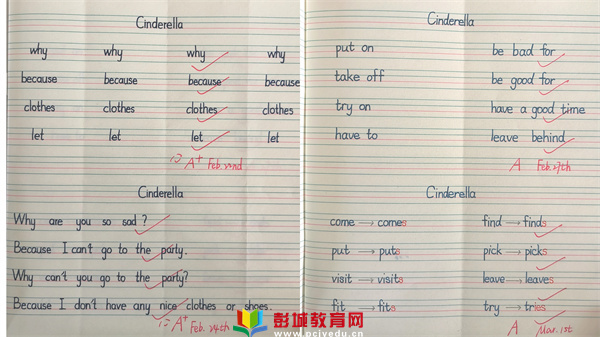 Cinderella
why why why why
because because because because
clothes clothes clothes clothes
let let let let
A+ Feb. 22nd
Cinderella
Why are you so sad?
Because I can't go to the party.
Why can't you go to the party?
Because I don't have any nice clothes or shoes.
A+ Feb. 24th
Cinderella
put on be bad for
take off be good for
try on have a good time
have to leave behind
A Feb. 27th
Cinderella
come → comes find → finds
put → puts pick → picks
visit → visits leave → leaves
fit → fits try → tries
A Mar. 1st
彭城教育网
www.pcjyedu.cn